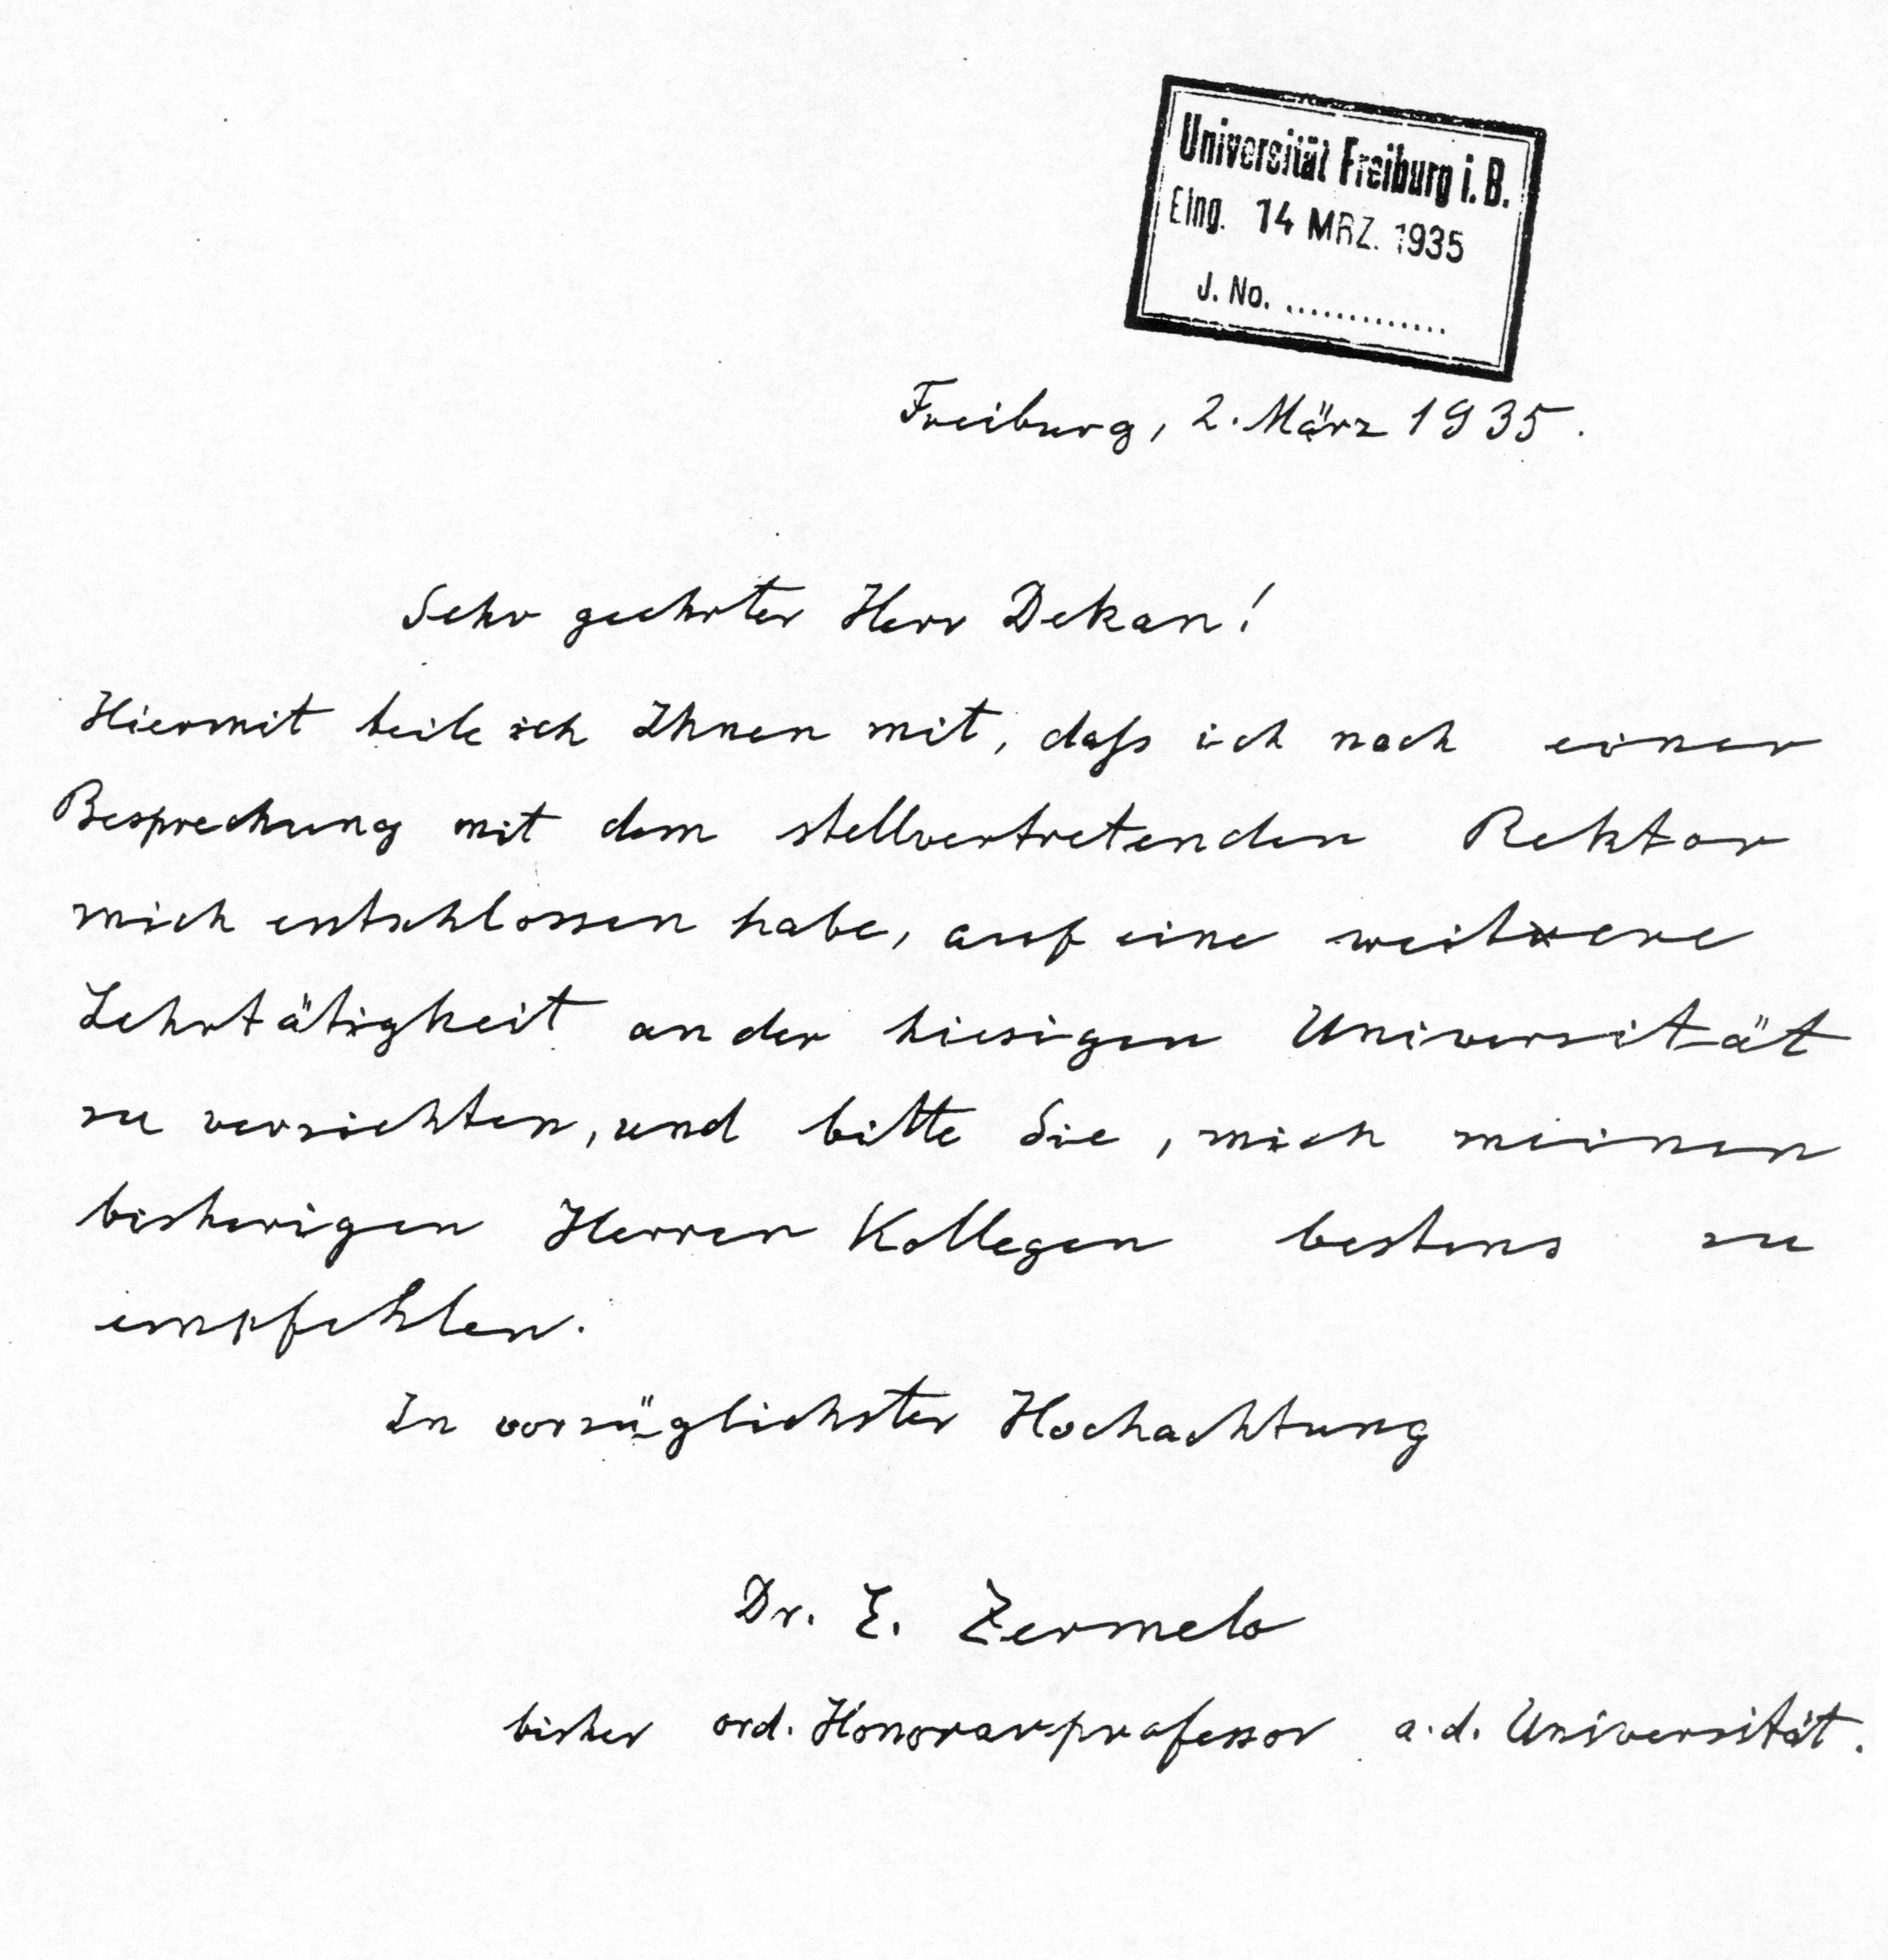 Universität Freiburg i. B.
Eing. 14 MRZ. 1935
J. No. ..............
Freiburg, 2. März 1935.
Sehr geehrter Herr Dekan!
Hiermit teile ich Ihnen mit, daß ich nach einer
Besprechung mit dem stellvertretenden Rektor
mich entschlossen habe, auf eine weitere
Lehrtätigkeit an der hiesigen Universität
zu verzichten, und bitte Sie, mich meinen
bisherigen Herren Kollegen bestens zu
empfehlen.
In vorzüglichster Hochachtung
Dr. E. Zermelo
bisher ord. Honorarprofessor a. d. Universität.